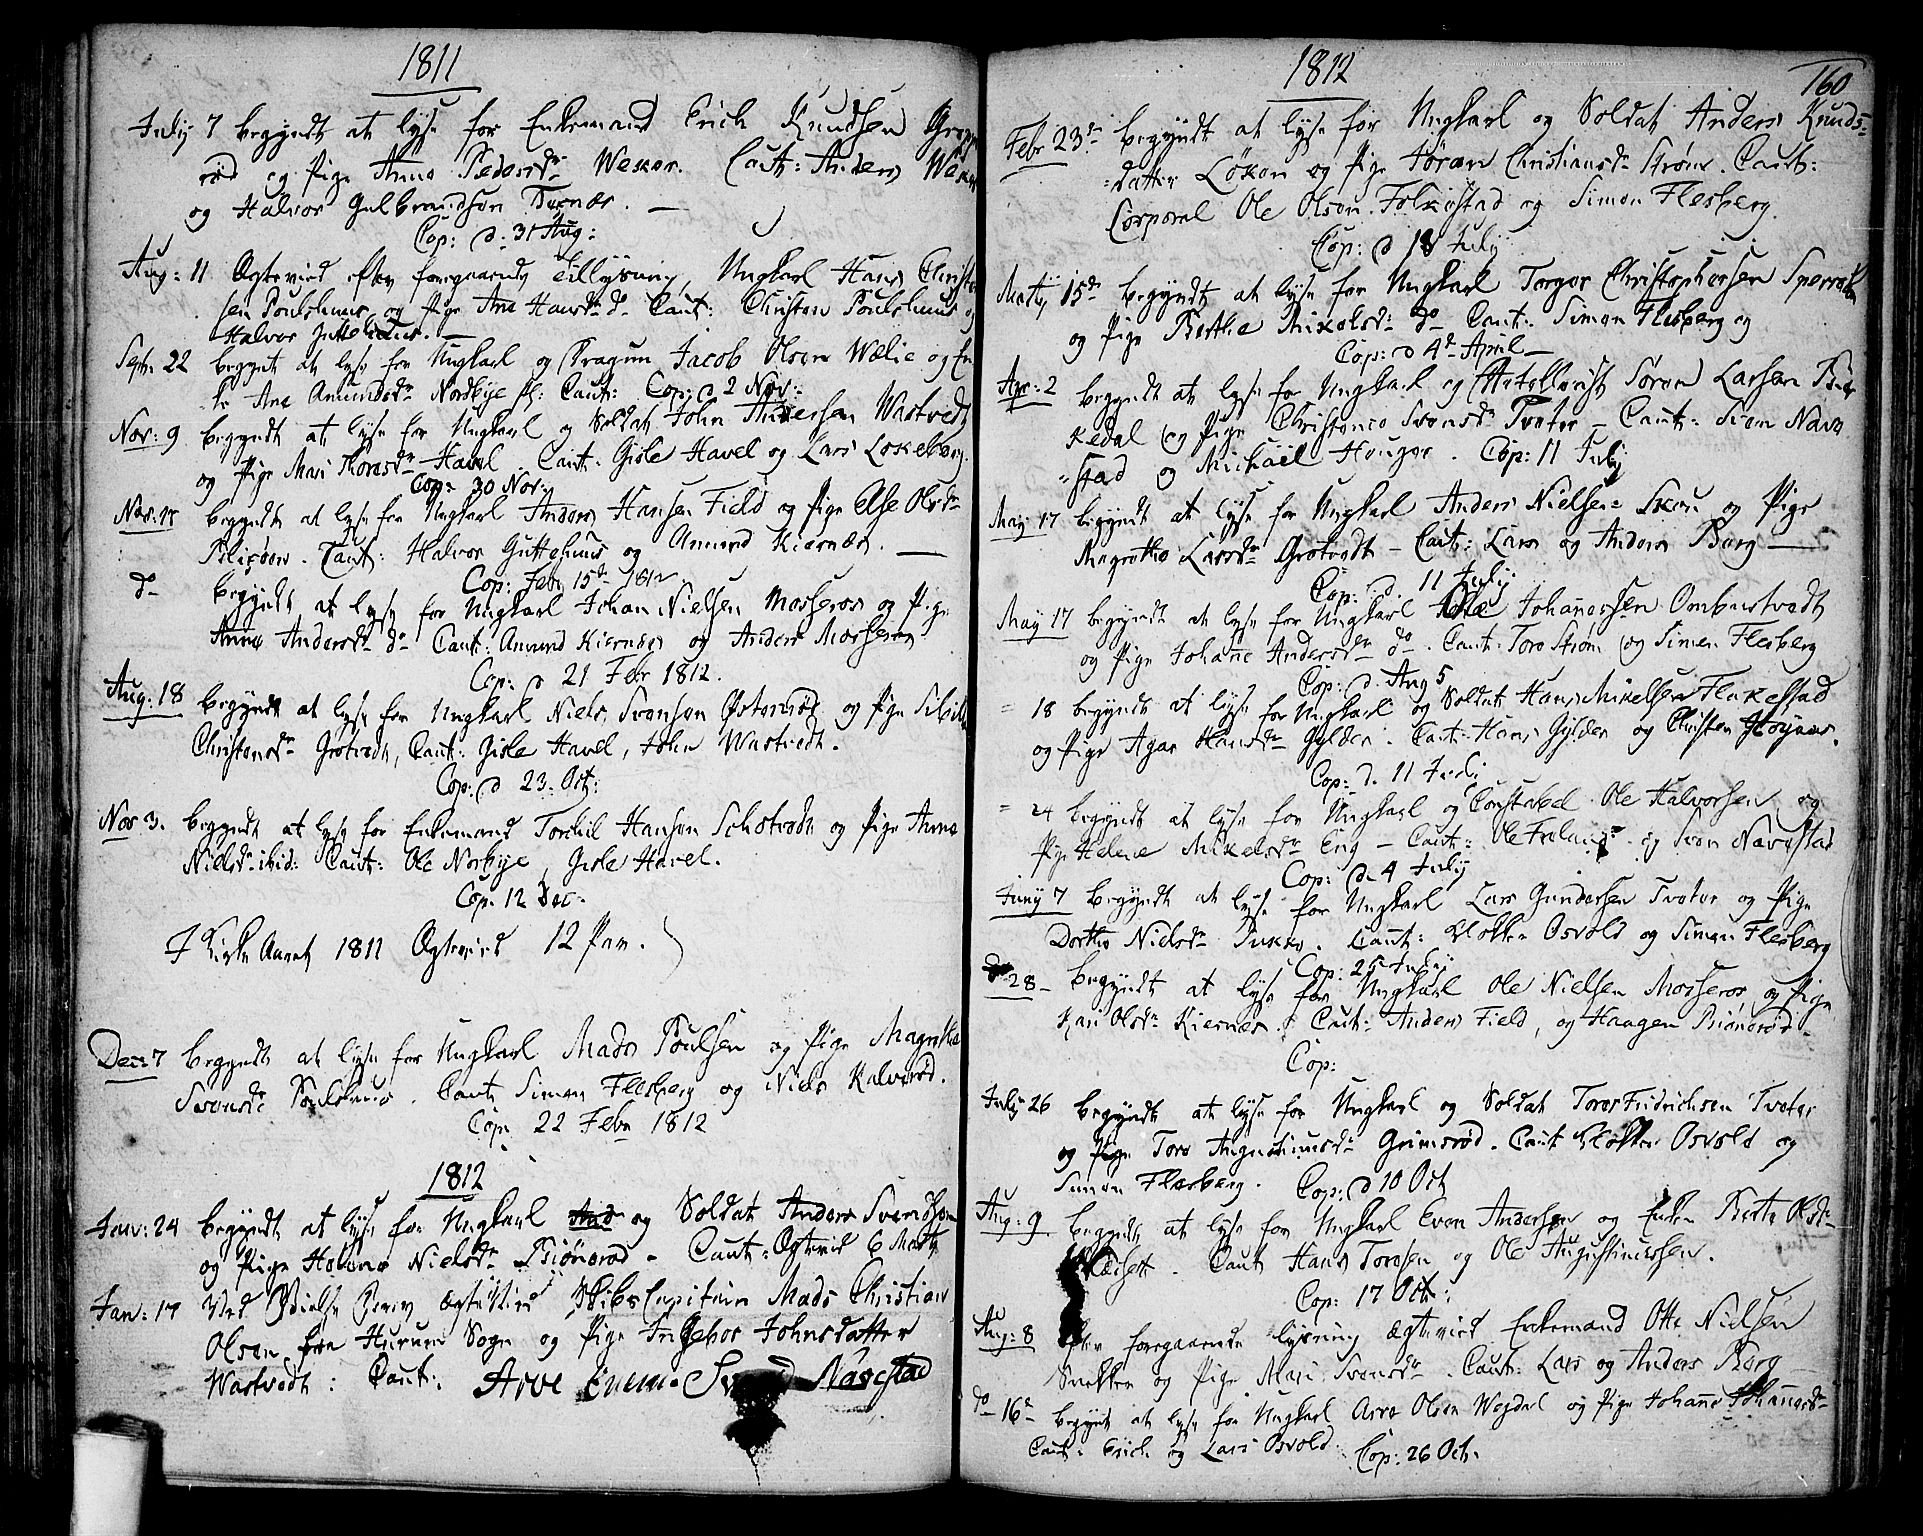 1811
July 7 begyndt at lyse for Enkemand Erich Knudsen
rød og Pige Anne Pedersdr Wesker. Caut: Anders
og Halvor Gulbrandsen Tornæs.
Cop: d: 31 Aug:
Aug: 11 Ægteviet efter foregaaende Tillysning, Ungkarl Hans
sen Poulshuus og Pige Ane Hansdr do Caut: Christen Poulshuus og
Halvor
Septr 22 begynt at lyse for Ungkarl og Dragun Jacob Olsen Wælie og En
ke Ane Amundsdr Nordbye Caut: Cop: d 2 Nov:
Nov: 9 begyndt at lyse for Ungkarl og Soldat John Andersen Wastvedt
og Pige Mari Thoresdr Havel Caut: Gisle Havel og Lars Loskeberg.
Cop: 30 Nov:
Nov: 17 begyndt at lyse for Ungkarl Anders Hansen Field og Pige Else Olsdr
Caut: Halvor Guttohuus og Amund Kiernæs.
Cop: Febr 15de 1812
do begyndt at lyse for Ungkarl Johan Nielsen Mosseros og Pige
Anne Andersdr do Caut: Amund Kiernæs og Anders Mosseros
Cop: d 21 Febr 1812.
Aug: 18 begyndt at lyse for Ungkarl Niels Svensen og Pige
Christensdr Grotvedt, Caut: Gisle Havel, John Wastvedt.
Cop: d 23. Oct:
Nov 3. begyndt at lyse for Enkemand Torchil Hansen og Pige Anne
Nielsdr ibid: Caut: Ole Norbye, Gisle Havel.
Cop. 12 Dec.
I Kirke Aaret 1811 Ægteviet 12 Par.
Decr 7 begyndt at lyse for Ungkarl Mads Poulsen og Pige Magrethe
Svensdr Poulshuus. Caut Simon Flesberg og Niels Kalverød.
Cop 22 Febr 1812
1812
Jan: 24 begyndt at lyse for Ungkarl og Soldat Anders Svendsen
og Pige Helene Nielsdr Biønerød. Caut: Ægteviet 6 Martz
Jan: 17 Ved ægteviet Skibs Capitain Mads Christian
Olsen fra Hurum Sogn og Pige Ingebor Johnsdatter
Wastvedt: Caut: Arve Enem. Navestad
1812
160
Febr 23de begyndt at lyse for Ungkarl og Soldat Anders Knuds=
=datter Løken og Pige Søren Christiansdr Strøm. Caut:
Corporal Ole Olsen Folkestad og Simon Flesberg.
Cop: d 18 July
Martz 15de begyndt at lyse for Ungkarl Torger Christophersen
og Pige Berthe Mikelsdr do Caut: Simon Flesberg og
Cop: d 4de April
Apr: 2 begyndt at lyse for Ungkarl og Søren Larsen
kedal og Pige Christence Svensdr Tveter Caut: Nave
=stad og Michäel Houger. Cop: 11 July
May 17 begyndt at lyse for Ungkarl Anders Nielsen Skou og Pige
Magrethe Larsdr Grotvedt Caut: Lars og Anders Borg
Cop: d. 11 July
May 17 begyndt at lyse for Ungkarl Johannessen Ombustvedt
og Pige Johanne Andersdr do. Caut: Tore Strøm og Simen Flesberg
Cop: d. Aug 5
= 18 begyndt at lyse for Ungkarl og Soldat Hans Mikelsen Flukestad
og Pige Agar Hansdr Gylder. Caut: Hans Gylder og Christen
Cop: d. 11 July
= 24 begyndt at lyse for Ungkarl og Constabel Ole Halvorsen og
Pige Helene Mikelsdr Eng Caut: Ole og Sven Navestad
Cop: d. 4 July
Juny 7 begyndt at lyse for Ungkarl Lars Gundersen Tveter og Pige
Dorthe Nielsdr Caut: Klokker Osvold og Simen Flesberg
Cop: 25 July
28 begyndt at lyse for Ungkarl Ole Nielsen Mosseros, og Pige
Kari Olsdr Kiernes. Caut: Anders Field, og Haagen Biønerød
Cop:
July 26 begyndt at lyse for Ungkarl og Soldat Tores Fridrichsen Tveter
og Pige Tore Augustinusdr Grimsrød. Caut Klokker Osvold og
Simon Flesberg. Cop: d 10 Oct
Aug: 9 begyndt at lyse for Ungkarl Even Andersen og Enken Berte Olsdr
Caut Hans Toresen og Ole Augustinussen.
Cop: 17 Oct:
Aug: 8 efter foregaaende lysning ægteviet Enkemand Otte Nielsen
Snekker og Pige Mari Svensdr. Caut: Lars og Anders Borg
do 16de begynt at lyse for Ungkarl Arve Olsen og Pige Johanne Johannesdr
Caut: Erich og Lars Osvold. Cop: 26 Oct.